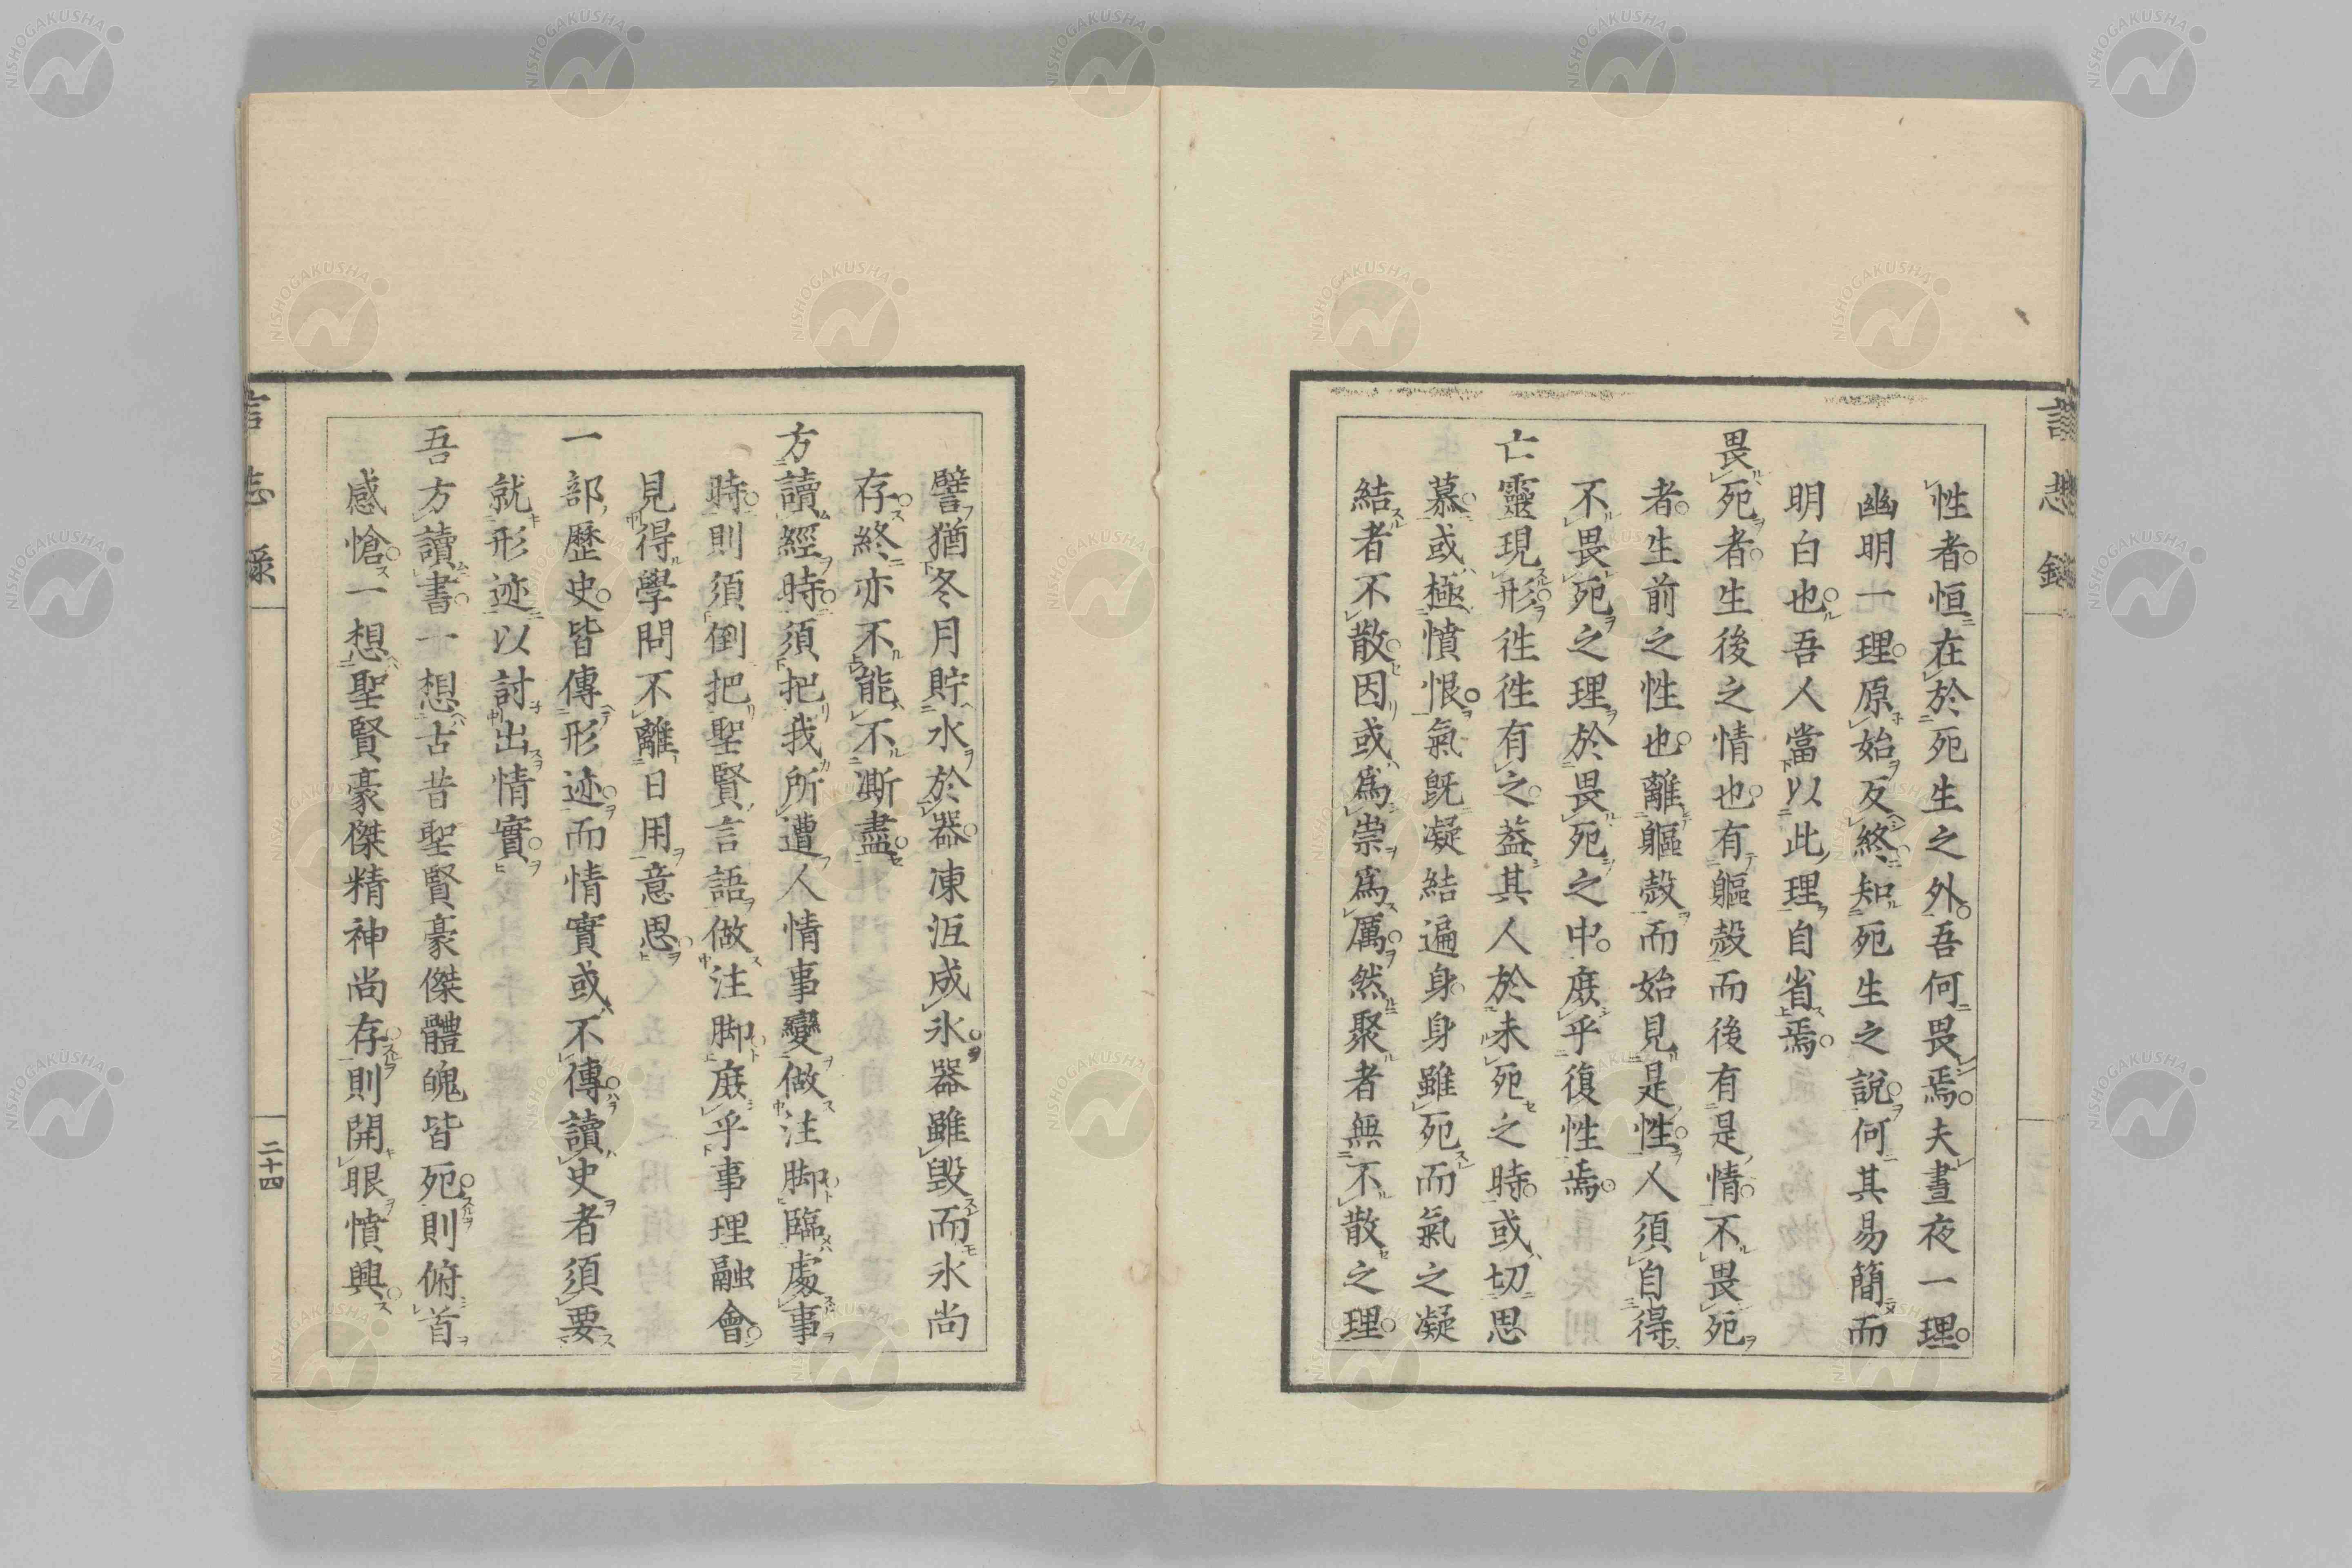 性者。恒在於死生之外。吾何畏焉。夫晝夜一理。
幽明一理。原始反終。知死生之說。何其易簡而
明白也。吾人當以此理自省焉。
畏死者。生後之情也。有軀殼而後有是情。不畏死
者。生前之性也。離軀殼而始見是性。人須自得
不畏死之理於畏死之中。庶乎復性焉。
亡靈現形。徃徃有之。蓋其人於未死之時。或切思
慕。或極憤恨。氣既凝結遍身。身雖死而氣之凝
結者不散。因或爲崇爲厲。然聚者無不散之理。
言志錄
譬猶冬月貯水於器。凍沍成氷。器雖毀而氷尚
存。終亦不能不澌盡。
方讀經時。須把我所遭人情事變做注脚。臨處事
時。則須倒把聖賢言語做注脚。庶乎事理融會。
見得學問不離日用意思。
一部歷史。皆傳形迹。而情實或不傳。讀史者。須要
就形迹以討出情實。
吾方讀書。一想古昔聖賢豪傑體魄皆死。則俯首
感愴。一想聖賢豪傑精神尚存。則開眼憤興。
二十四
NISHOGAKUSHA